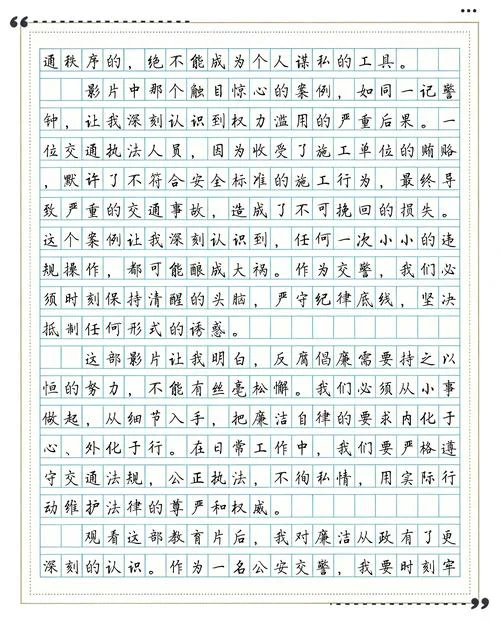 通秩序的，绝不能成为个人谋私的工具。
影片中那个触目惊心的案例，如同一记警
钟，让我深刻认识到权力滥用的严重后果。一
位交通执法人员，因为收受了施工单位的贿赂
，默许了不符合安全标准的施工行为，最终导
致严重的交通事故，造成了不可挽回的损失。
这个案例让我深刻认识到，任何一次小小的违
规操作，都可能酿成大祸。作为交警，我们必
须时刻保持清醒的头脑，严守纪律底线，坚决
抵制任何形式的诱惑。
这部影片让我明白，反腐倡廉需要持之以
恒的努力，不能有丝毫松懈。我们必须从小事
做起，从细节入手，把廉洁自律的要求内化于
心、外化于行。在日常工作中，我们要严格遵
守交通法规，公正执法，不徇私情，用实际行
动维护法律的尊严和权威。
观看这部教育片后，我对廉洁从政有了更
深刻的认识。作为一名公安交警，我要时刻牢